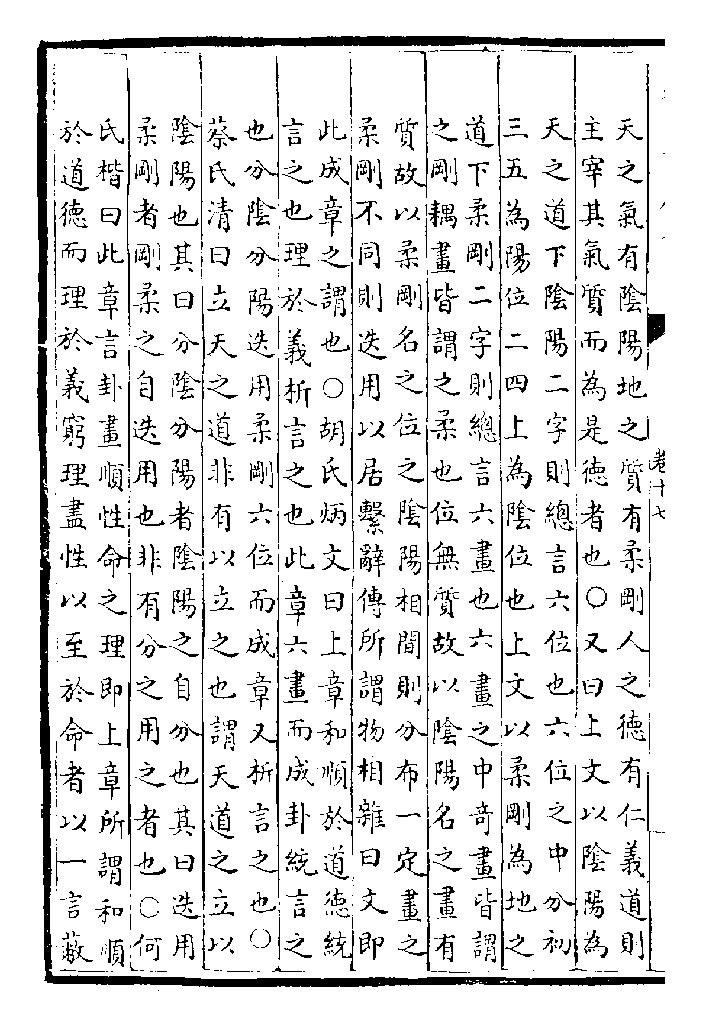 天之氣有陰陽地之質有柔剛人之德有仁義道則
主宰其氣質而為是德者也○又曰上文以陰陽為
天之道下陰陽二字則總言六位也六位之中分初
三五為陽位二四上為陰位也上文以柔剛為地之
道下柔剛二字則總言六畫也六畫之中奇畫皆謂
之剛耦畫皆謂之柔也位無質故以陰陽名之畫有
質故以柔剛名之位之陰陽相間則分布一定畫之
柔剛不同則迭用以居繫辭傳所謂物相雜曰文即
此成章之謂也○胡氏炳文曰上章和順於道德統
言之也理於義析言之也此章六畫而成卦統言之
也分陰分陽迭用柔剛六位而成章又析言之也○
蔡氏清曰立天之道非有以立之也謂天道之立以
陰陽也其曰分陰分陽者陰陽之自分也其曰迭用
柔剛者剛柔之自迭用也非有分之用之者也○何
氏楷曰此章言卦畫順性命之理即上章所謂和順
於道德而理於義窮理盡性以至於命者以一言蔽
卷十七